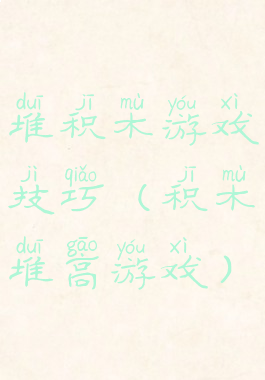 duī jī mù yóu xì
堆积木游戏
jì qiǎo jī mù
技巧（积木
duī gāo yóu xì
堆高游戏）